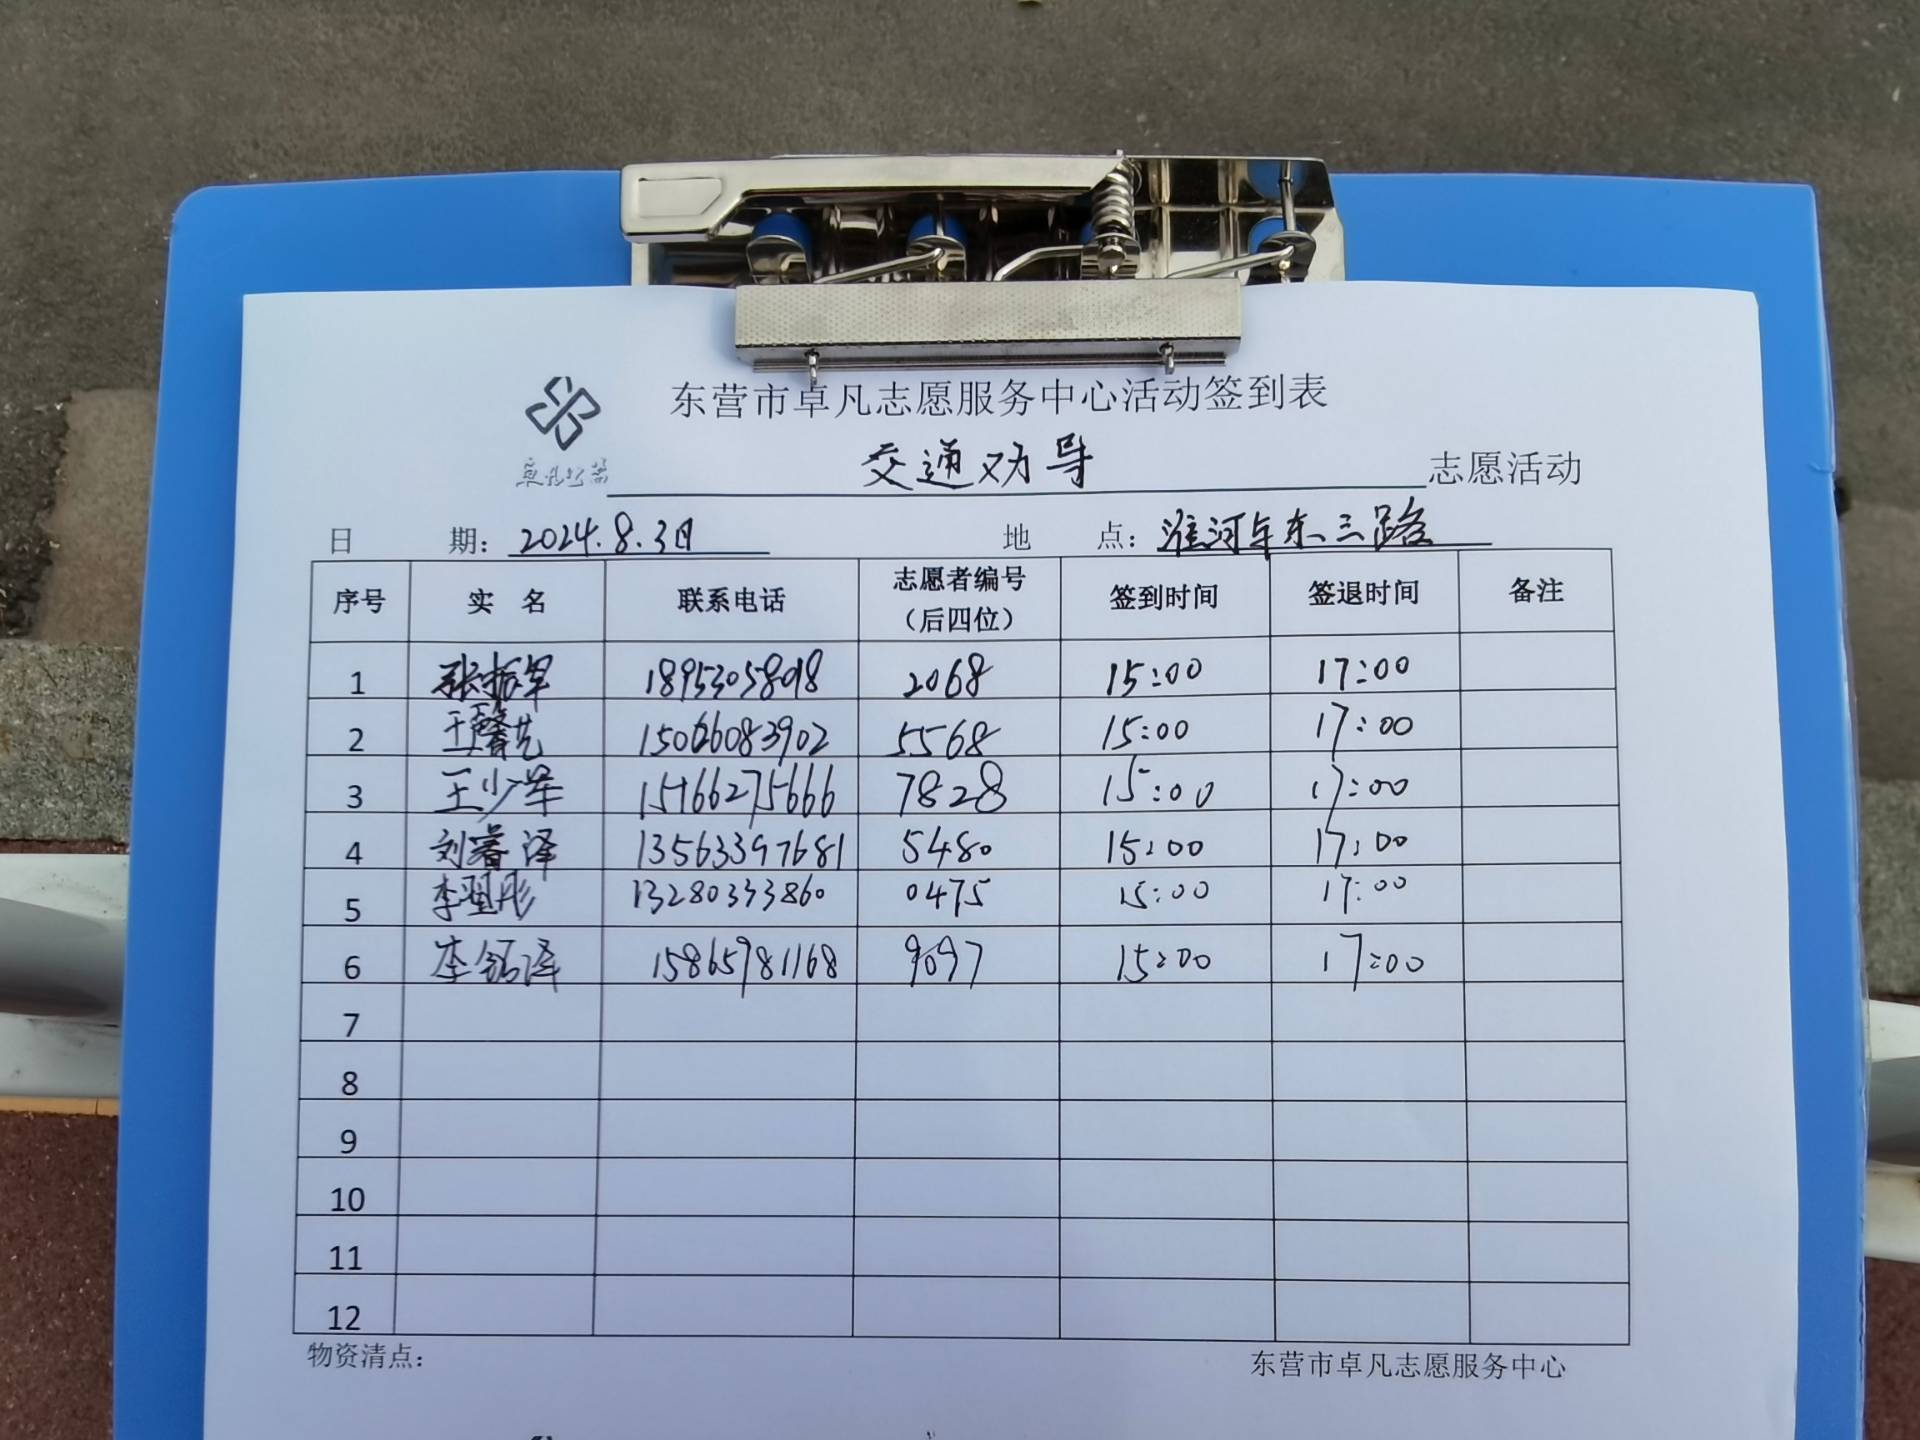 东营市卓凡志愿服务中心活动签到表
卓凡公益 交通劝导 志愿活动
日 期：2024.8.3日 地 点：淮河与东三路
序号 实 名 联系电话 志愿者编号（后四位） 签到时间 签退时间 备注
1 张振军 18953058018 2068 15:00 17:00
2 王馨艺 15066083902 5568 15:00 17:00
3 王少军 15166275666 7828 15:00 17:00
4 刘睿泽 13563397681 5480 15:00 17:00
5 李彤 13280333860 0475 15:00 17:00
6 李铭泽 15865981168 9097 15:00 17:00
7
8
9
10
11
12
物资清点： 东营市卓凡志愿服务中心